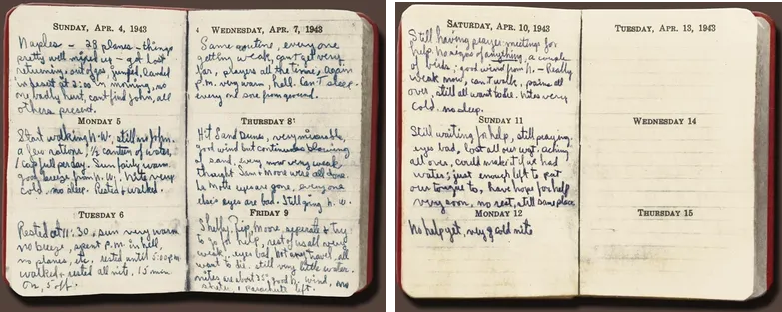 SUNDAY, APR. 4, 1943
Naples – 28 planes – things
pretty well mixed up – got lost
returning, out of gas, jumped, landed
in desert at 2:00 in morning, no
one badly hurt, cant find John, all
others present.
MONDAY 5
Start walking N.W., still no John.
a few rations, ½ canteen of water,
1 cap full per day. Sun fairly warm
good breeze from N.W. Nite very
cold. no sleep. Rested & walked.
TUESDAY 6
Rested at 11:30, sun very warm
no breeze, spent P.M. in hell,
no planes, etc. rested until 5:00 P.M.
walked & rested all nite. 15 min
on, 5 off.
WEDNESDAY, APR. 7, 1943
Same routine, every one
getting weak, cant get very
far, prayers all the time, again
P.M. very warm, hell. Can't sleep.
every one sore from ground.
THURSDAY 8
Hit Sand Dunes, very miserable,
good wind but continuous blowing
of sand, every now very weak,
thought Sam & Moore were all done.
La Motte eyes are gone, everyone
else's eyes are bad. Still going N.W.
FRIDAY 9
Shelly, Rip, Moore separate & try
to go for help, rest of us all very
weak, eyes bad, not any travel, all
want to die. still very little water.
nites are about 35° good N. wind, no
shelter, 1 parachute left.
SATURDAY, APR. 10, 1943
Still having prayer meetings for
help. No signs of anything, a couple
of birds; good wind from N. – Really
weak now, cant walk, pains all
over, still all want to die. Nites very
cold. no sleep.
SUNDAY 11
Still waiting for help, still praying.
eyes bad, lost all our wgt. aching
all over, could make it if we had
water; just enough left to put
our tongue to, have hope for help
very soon, no rest, still same place.
MONDAY 12
No help yet, very cold nite
TUESDAY, APR. 13, 1943
WEDNESDAY 14
THURSDAY 15